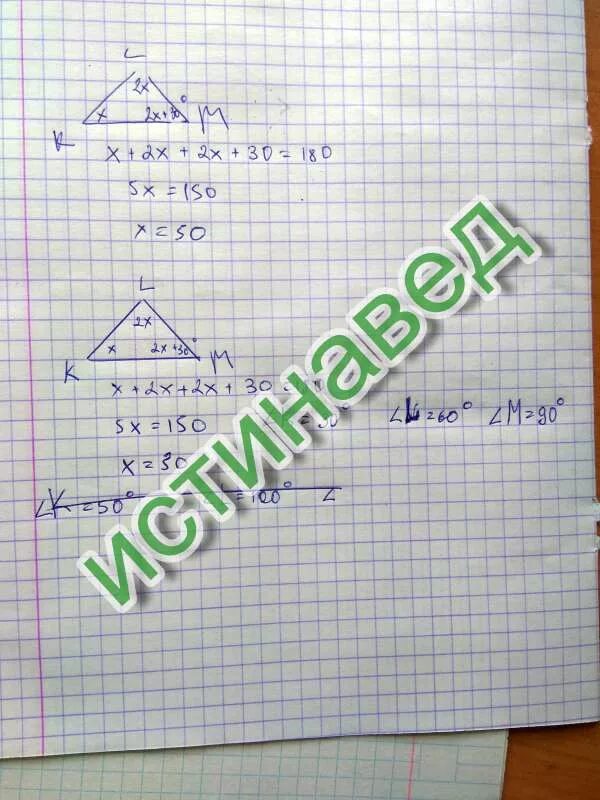 L
2x
x 2x+30°
K M
x + 2x + 2x + 30 = 180
5x = 150
x = 50
L
2x
x 2x+30°
K M
x + 2x + 2x + 30
5x = 150 ∠L=60° ∠M=90°
x = 30
∠K=50° =100° ∠
ИСТИНАВЕД